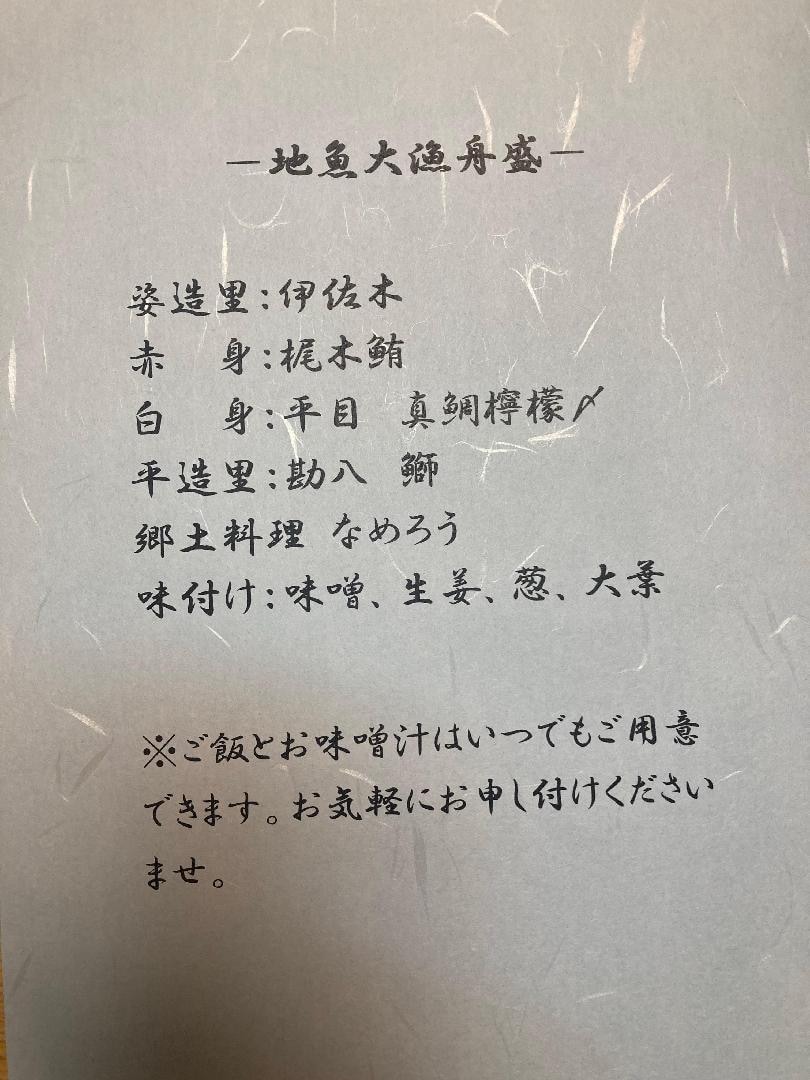 ―地魚大漁舟盛―
姿造里：伊佐木
赤　身：梶木鮪
白　身：平目　真鯛檸檬〆
平造里：勘八　鰤
郷土料理　なめろう
味付け：味噌、生姜、葱、大葉
※ご飯とお味噌汁はいつでもご用意
できます。お気軽にお申し付けください
ませ。